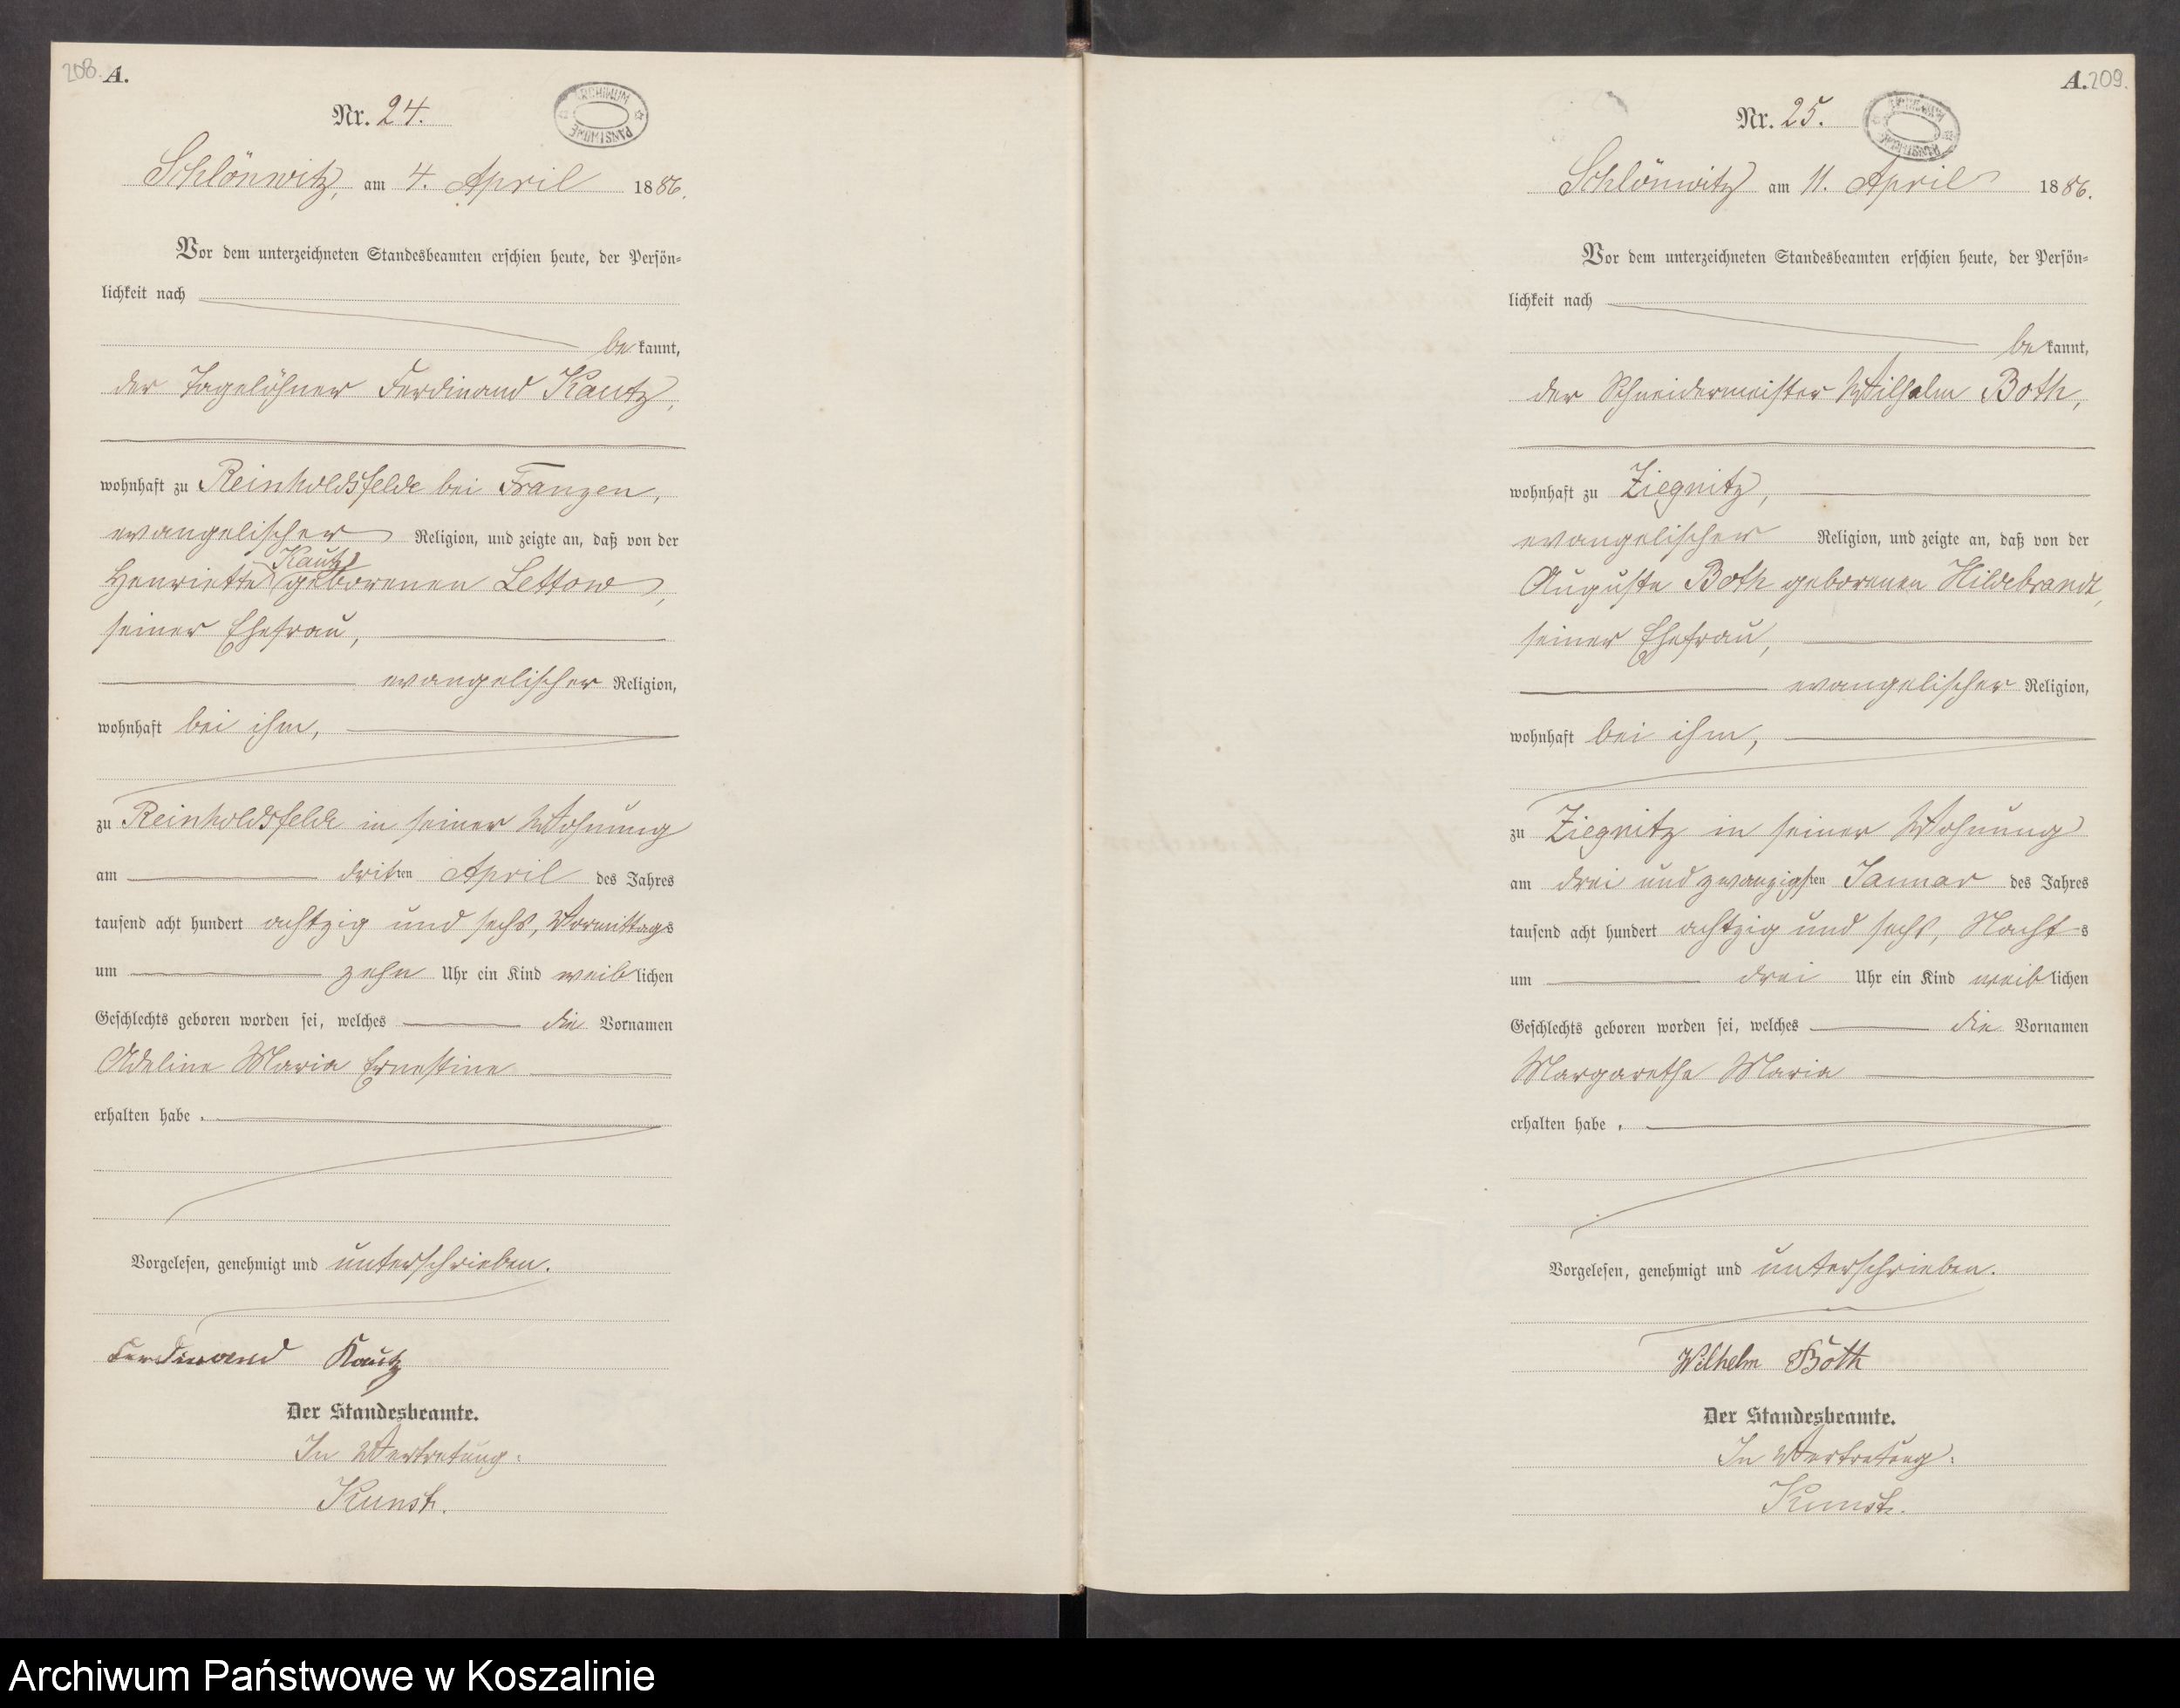 208. A.
Nr. 24.
ARCHIWUM PAŃSTWOWE
Schlönwitz, am 4. April 1886.
Vor dem unterzeichneten Standesbeamten erschien heute, der Persön-
lichkeit nach
be kannt,
der Tagelöhner Ferdinand Kautz,
wohnhaft zu Reinholdsfelde bei Franzen,
evangelischer Religion, und zeigte an, daß von der
Kautz
Henriette geborenen Lettow,
seiner Ehefrau,
evangelischer Religion,
wohnhaft bei ihm,
zu Reinholdsfelde in seiner Wohnung
am dritten April des Jahres
tausend acht hundert achtzig und sechs, Vormittags
um zehn Uhr ein Kind weiblichen
Geschlechts geboren worden sei, welches die Vornamen
Adeline Maria Ernestine
erhalten habe.
Vorgelesen, genehmigt und unterschrieben.
Ferdinand Kautz
Der Standesbeamte.
In Vertretung:
Kunst.
A. 209.
Nr. 25.
ARCHIWUM PAŃSTWOWE
Schlönwitz am 11. April 1886.
Vor dem unterzeichneten Standesbeamten erschien heute, der Persön-
lichkeit nach
be kannt,
der Schneidermeister Wilhelm Both,
wohnhaft zu Ziegnitz,
evangelischer Religion, und zeigte an, daß von der
Auguste Both geborenen Hildebrandt,
seiner Ehefrau,
evangelischer Religion,
wohnhaft bei ihm,
zu Ziegnitz in seiner Wohnung
am drei und zwanzigsten Januar des Jahres
tausend acht hundert achtzig und sechs, Nachts
um drei Uhr ein Kind weiblichen
Geschlechts geboren worden sei, welches die Vornamen
Margarethe Maria
erhalten habe.
Vorgelesen, genehmigt und unterschrieben.
Wilhelm Both
Der Standesbeamte.
In Vertretung:
Kunst.
Archiwum Państwowe w Koszalinie